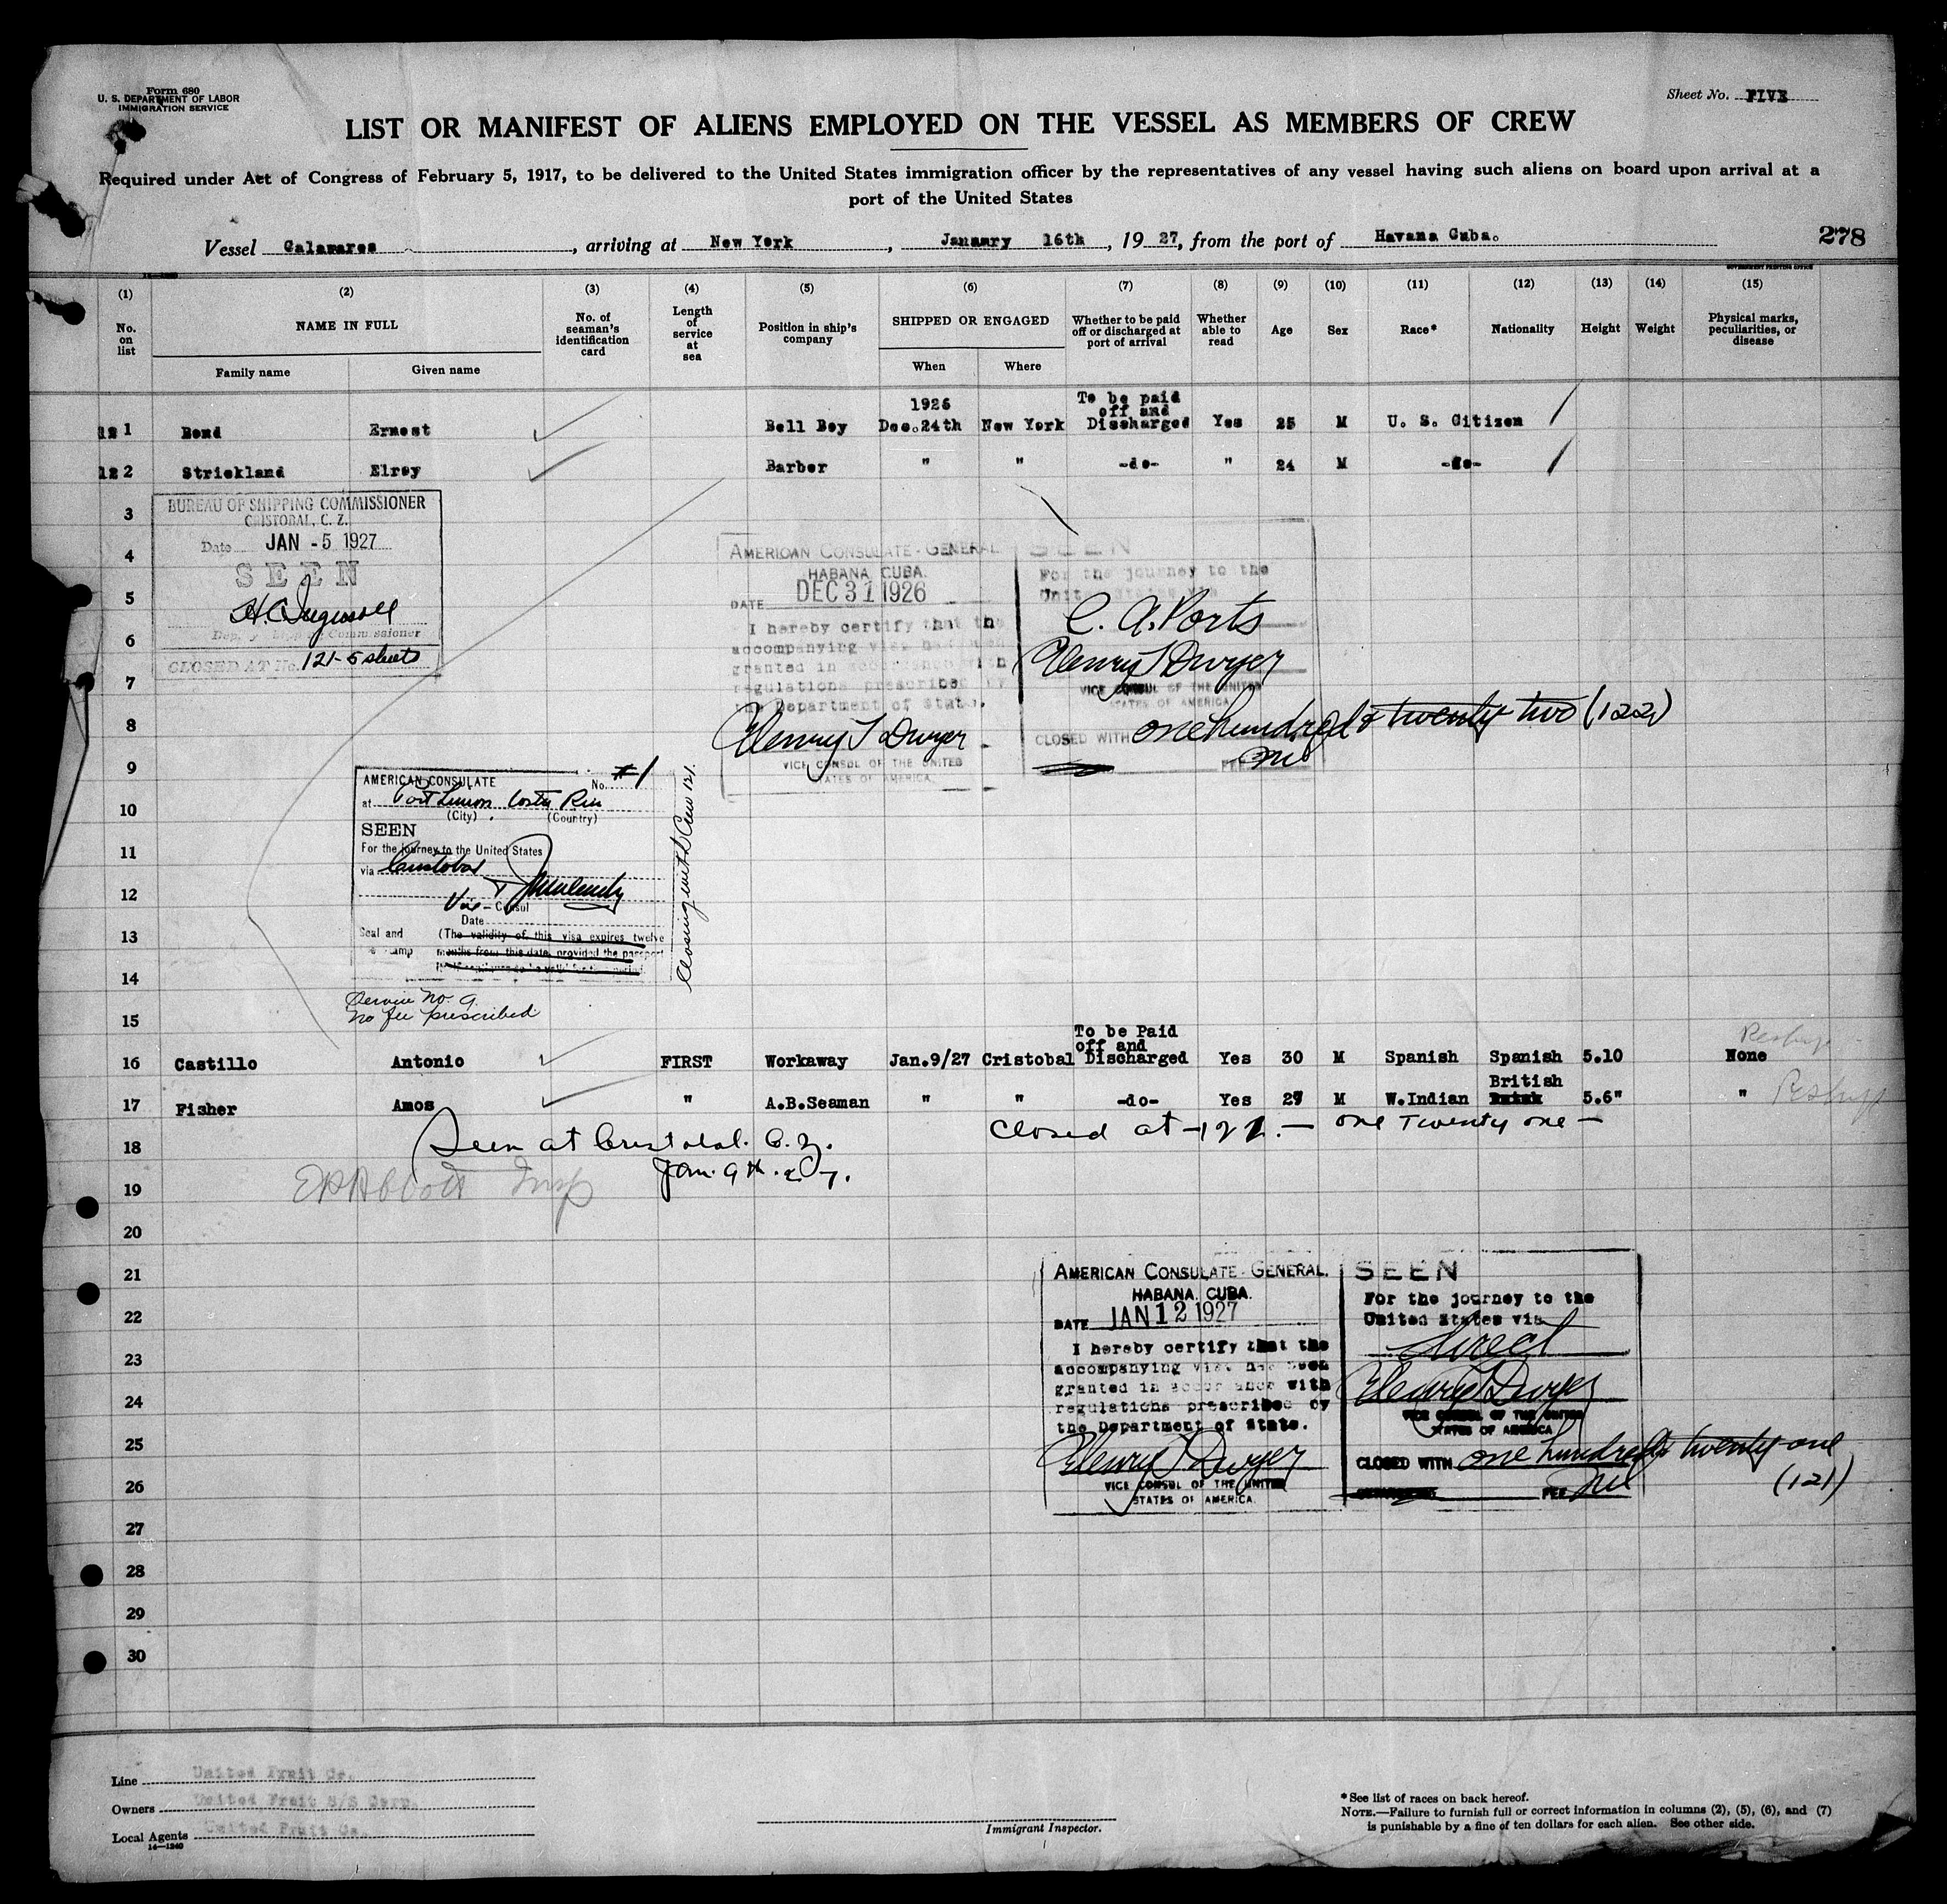 Form 680
U. S. DEPARTMENT OF LABOR
IMMIGRATION SERVICE
Sheet No. FIVE
LIST OR MANIFEST OF ALIENS EMPLOYED ON THE VESSEL AS MEMBERS OF CREW
Required under Act of Congress of February 5, 1917, to be delivered to the United States immigration officer by the representatives of any vessel having such aliens on board upon arrival at a
port of the United States
Vessel Calamares, arriving at New York, January 16th, 1927, from the port of Havana Cuba.
278
GOVERNMENT PRINTING OFFICE
(1) (2) (3) (4) (5) (6) (7) (8) (9) (10) (11) (12) (13) (14) (15)
No. on list
NAME IN FULL
Family name
Given name
No. of seaman's identification card
Length of service at sea
Position in ship's company
SHIPPED OR ENGAGED
When
Where
Whether to be paid off or discharged at port of arrival
Whether able to read
Age
Sex
Race*
Nationality
Height
Weight
Physical marks, peculiarities, or disease
12 1 Bond Ernest Bell Boy 1926 Dec.24th New York To be paid off and Discharged Yes 25 M U. S. Citizen
12 2 Strickland Elroy Barber " " -do- " 24 M -do-
3
BUREAU OF SHIPPING COMMISSIONER
CRISTOBAL, C. Z.
Date JAN -5 1927
SEEN
Commissioner
CLOSED AT No. 121-5 sheets
4
5
6
7
8
AMERICAN CONSULATE-GENERAL.
HABANA, CUBA.
DATE DEC 31 1926
I hereby certify that the
accompanying visa has been
granted in accordance with
regulations prescribed by
the Department of State.
Henry T Dwyer
VICE CONSUL OF THE UNITED
STATES OF AMERICA.
SEEN
For the journey to the
United States via
C. A. Ports
Henry T Dwyer
VICE CONSUL OF THE UNITED
STATES OF AMERICA
CLOSED WITH one hundred & twenty two (122)
FEE
9
10
11
12
13
14
AMERICAN CONSULATE
No. #1
at Port Limon Costa Rica
(City) (Country)
SEEN
For the journey to the United States
via Cristobal
Vice-Consul
Date
Seal and (The validity of this visa expires twelve
stamp months from this date, provided the passport
Closing with Crew 121.
Service No. 9.
No fee prescribed
15
16 Castillo Antonio FIRST Workaway Jan.9/27 Cristobal To be Paid off and Discharged Yes 30 M Spanish Spanish 5.10 None
Reship
17 Fisher Amos " A.B.Seaman " " -do- Yes 27 M W.Indian British 5.6" "
Reship
Closed at -121.- one Twenty one -
18 Seen at Cristobal. C.Z.
Jan. 9th. 27.
19 Insp
20
21
22
23
24
25
26
AMERICAN CONSULATE-GENERAL.
HABANA, CUBA.
DATE JAN 12 1927
I hereby certify that the
accompanying visa has been
granted in accordance with
regulations prescribed by
the Department of State.
Henry T Dwyer
VICE CONSUL OF THE UNITED
STATES OF AMERICA.
SEEN
For the journey to the
United States via
direct
Henry T Dwyer
VICE CONSUL OF THE UNITED
STATES OF AMERICA
CLOSED WITH one hundred & twenty one
(121)
FEE Nil
27
28
29
30
Line United Fruit Co.
Owners United Fruit S/S Corp.
Local Agents United Fruit Co.
14-1240
Immigrant Inspector.
* See list of races on back hereof.
NOTE.—Failure to furnish full or correct information in columns (2), (5), (6), and (7)
is punishable by a fine of ten dollars for each alien. See other side.